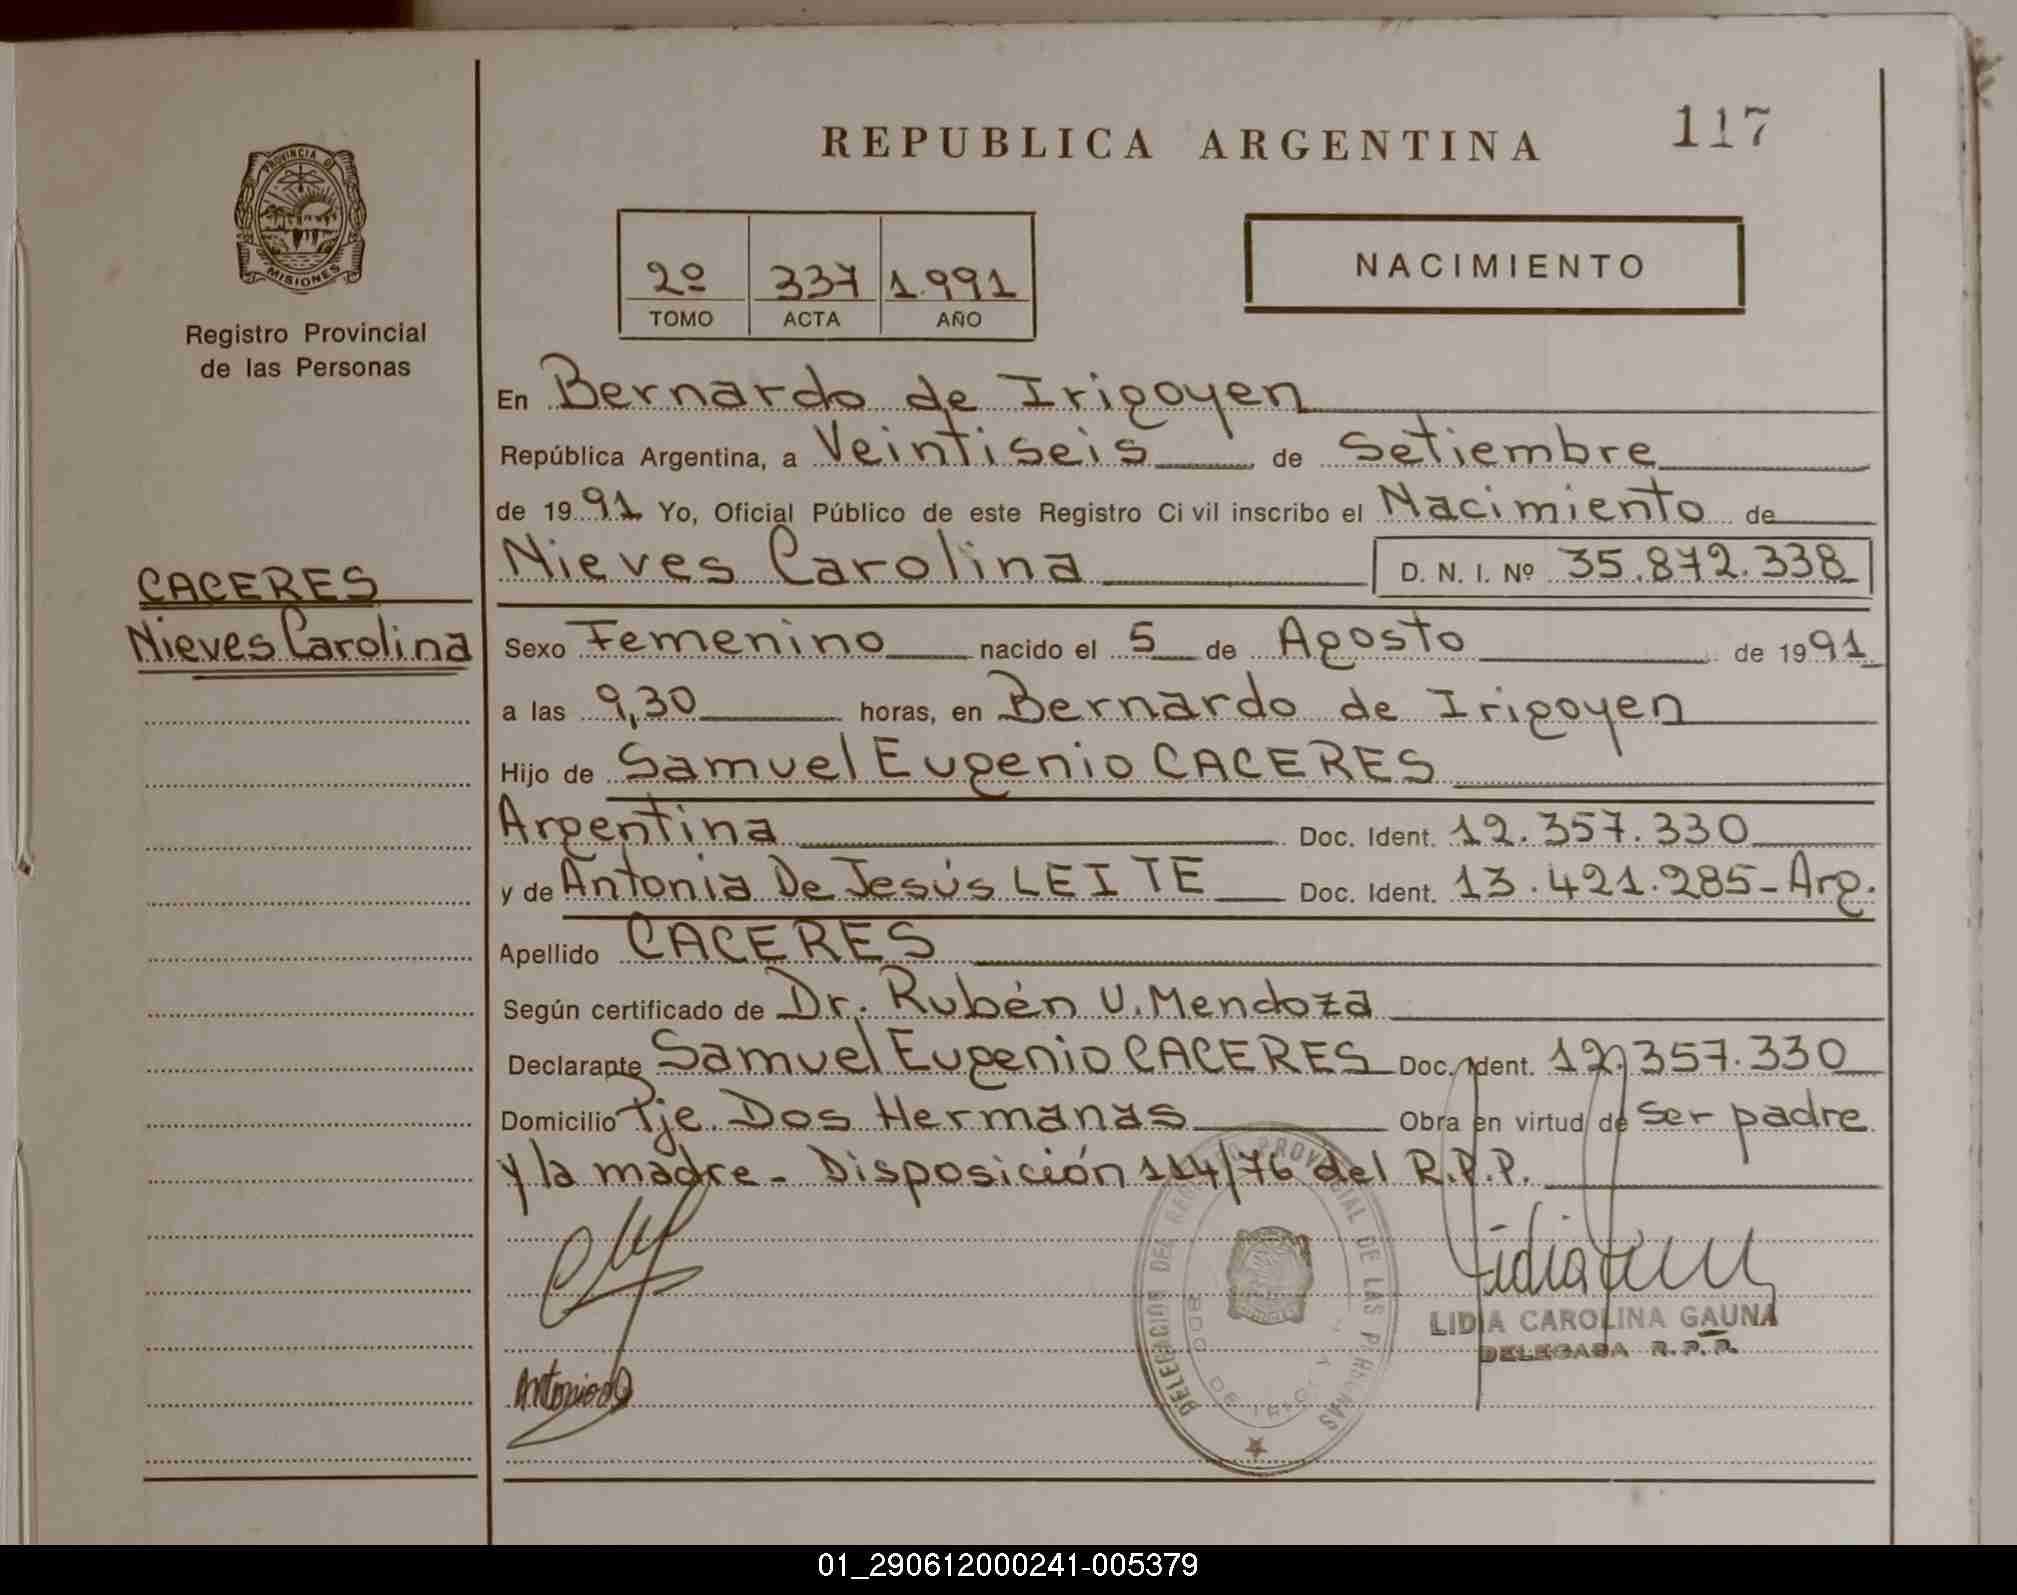 REPUBLICA ARGENTINA
117
PROVINCIA D
MISIONES
Registro Provincial
de las Personas
2º 337 1.991
TOMO ACTA AÑO
NACIMIENTO
En Bernardo de Irigoyen
República Argentina, a Veintiseis de Setiembre
de 1991 Yo, Oficial Público de este Registro Civil inscribo el Nacimiento de
Nieves Carolina D. N. I. Nº 35.872.338
CACERES
Nieves Carolina
Sexo Femenino nacido el 5 de Agosto de 1991
a las 9,30 horas, en Bernardo de Irigoyen
Hijo de Samuel Eugenio CACERES
Argentina Doc. Ident. 12.357.330
y de Antonia De Jesús LEITE Doc. Ident. 13.421.285- Arg.
Apellido CACERES
Según certificado de Dr. Rubén U. Mendoza
Declarante Samuel Eugenio CACERES Doc. Ident. 12.357.330
Domicilio Pje. Dos Hermanas Obra en virtud de ser padre
y la madre - Disposición 114/76 del R.P.P.
DELEGACION DEL REGISTRO PROVINCIAL DE LAS PERSONAS
BDO DE IRIGOYEN
LIDIA CAROLINA GAUNA
DELEGADA R. P. P.
01_290612000241-005379